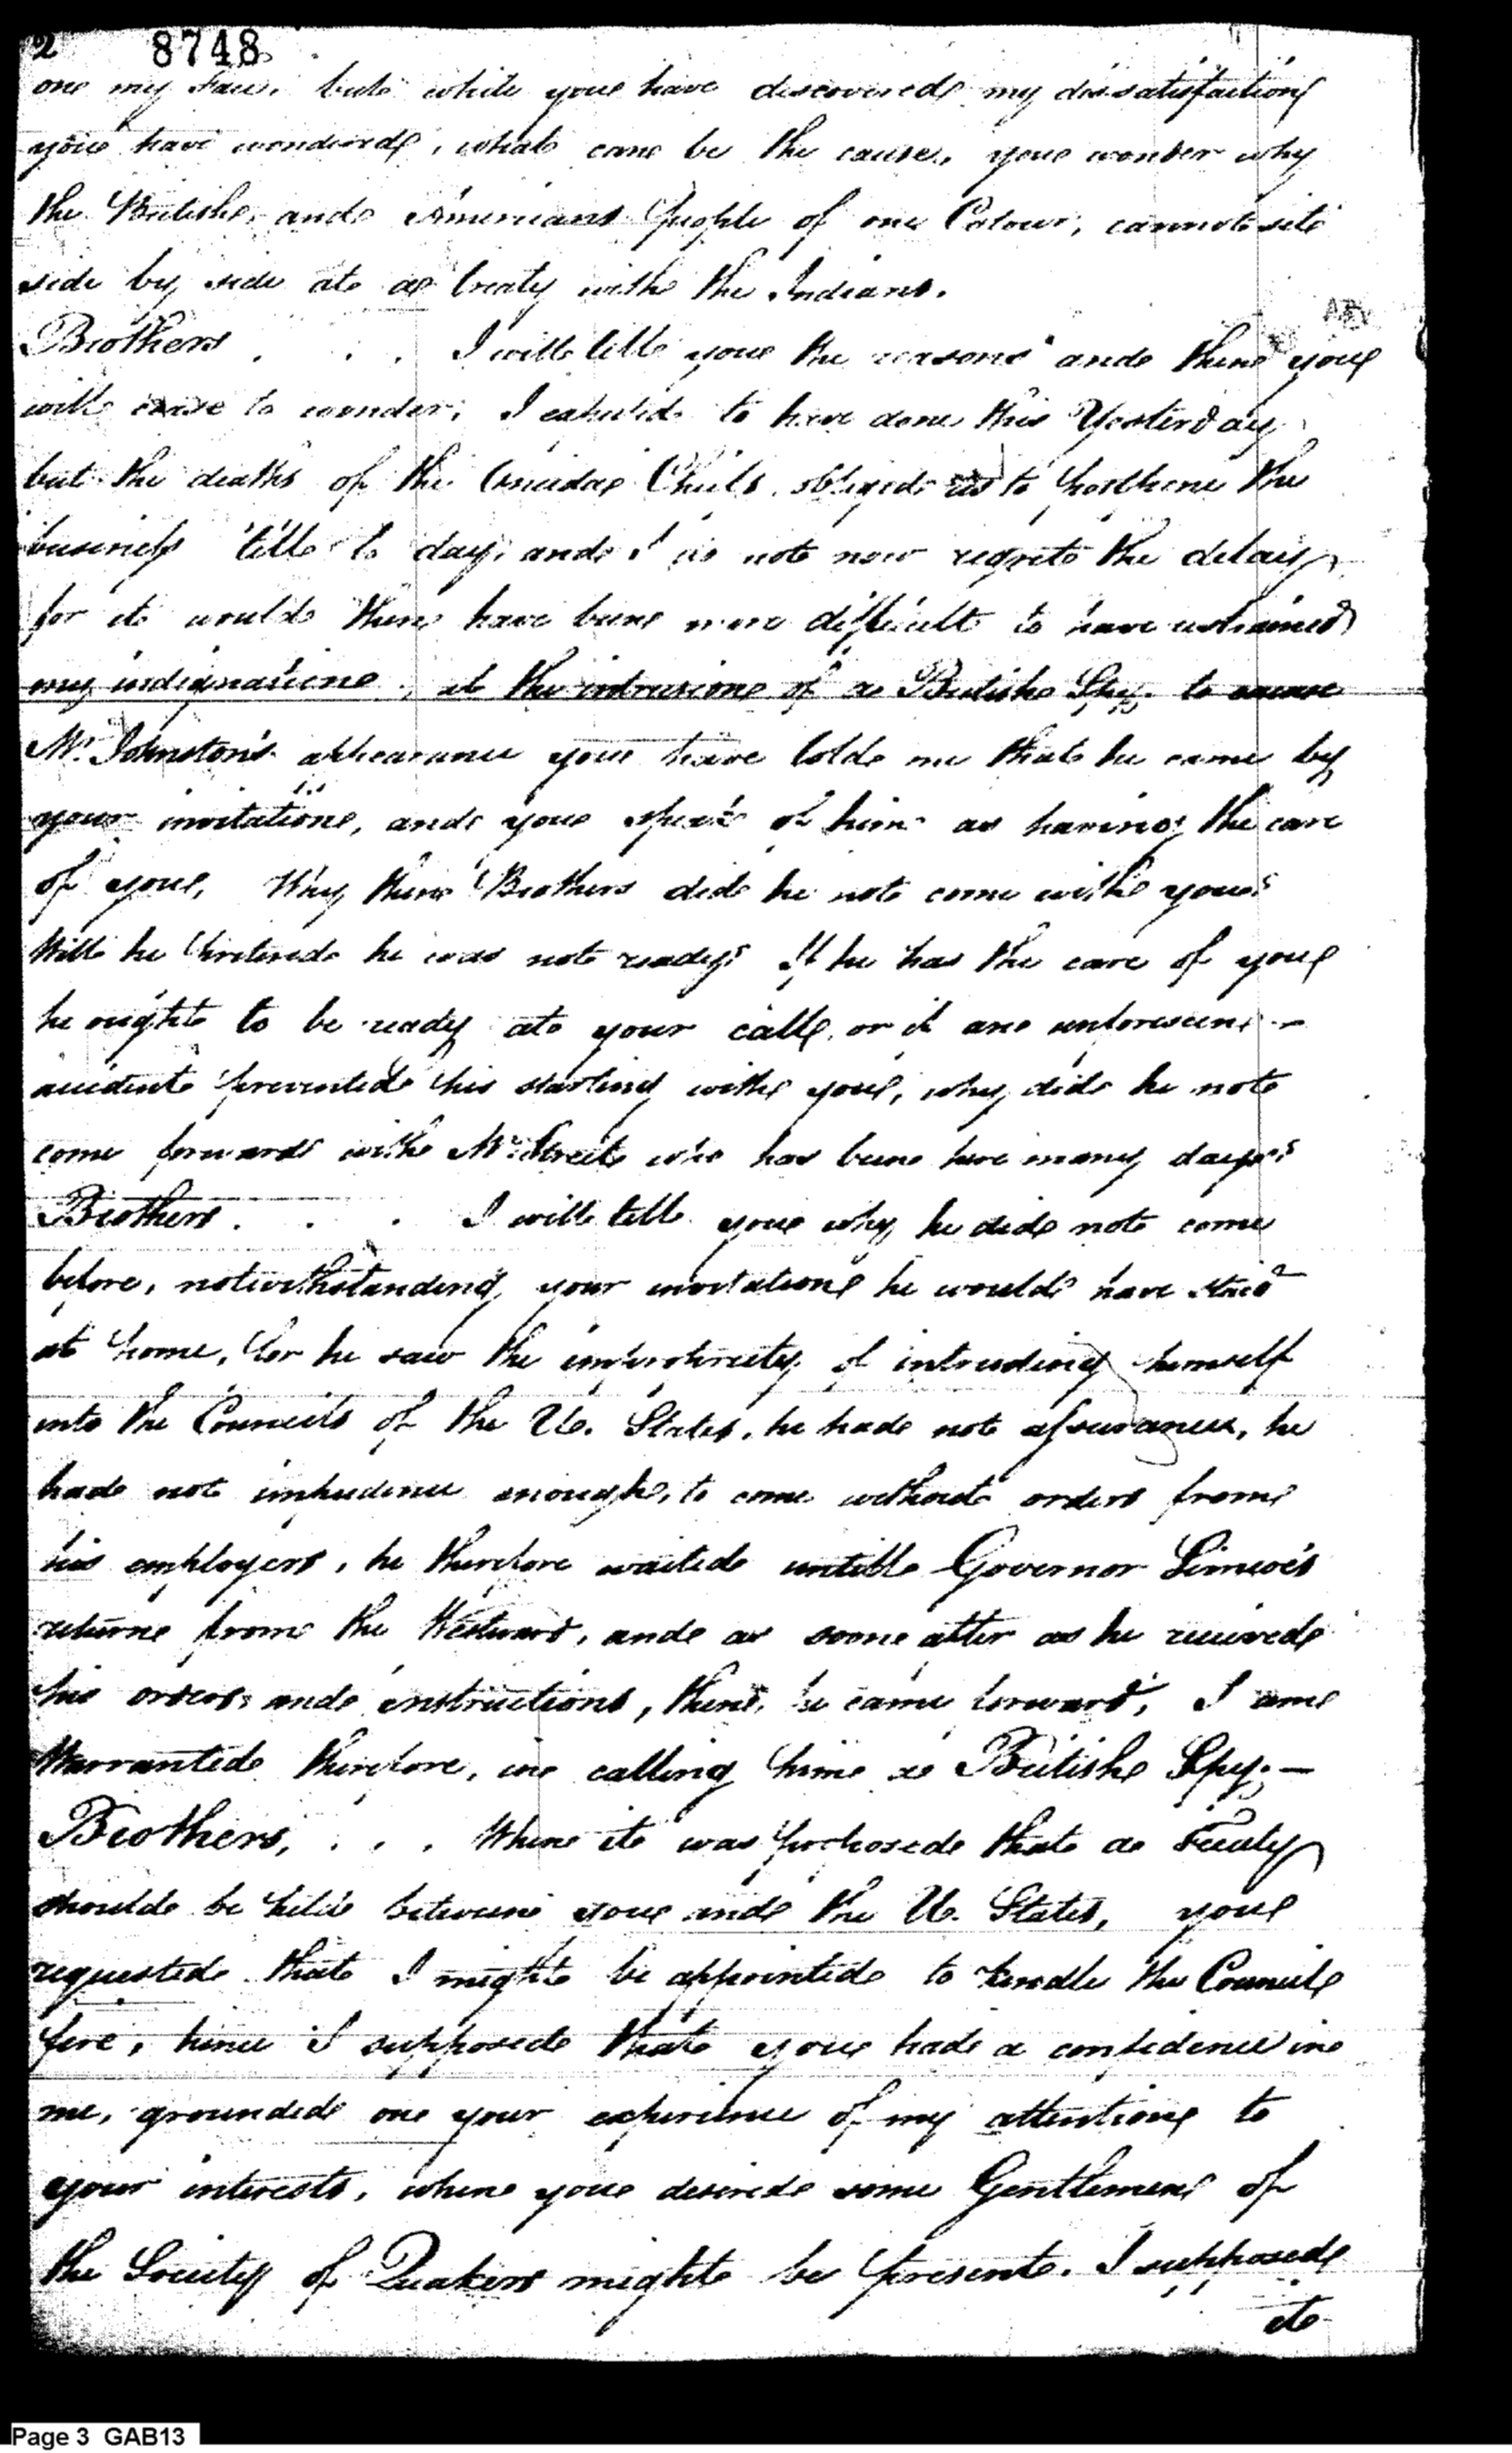 2 8748
on my Face, but while you have discovered my dissatisfaction
you have wondered, what can be the cause, you wonder why
the British, and Americans people of one Colour, cannot sit
side by side at a treaty with the Indians.
Brothers . . . I will tell you the reasons and then you
will cease to wonder; I expected to have done this Yesterday
but the death of the Oneida Chief, obliged us to postpone the
business 'till to day, and I do not now regret the delay
for it would then have been more difficult to have restrained
my indignation, at the intrusion of a British Spy. to excuse
Mr. Johnston's appearance you have told me that he came by
your invitation, and you speak of him as having the care
of you, Why then Brothers did he not come with you?
Will he pretend he was not ready? If he has the care of you
he ought to be ready at your call, or if an unforeseen
accident prevented his starting with you, why did he not
come forward with Mr. Street who has been here many days?
Brothers . . . I will tell you why he did not come
before, notwithstanding your invitation he would have staid
at home, for he saw the impropriety of intruding himself
into the Councils of the U. States, he had not assurance, he
had not impudence enough, to come without orders from
his employers, he therefore waited untill Governor Simcoe's
return from the Westward, and as soon after as he received
his orders and instructions, then, he came forward, I am
Warranted therefore, in calling him a British Spy. —
Brothers, . . . When it was proposed that a Treaty
should be held between you and the U. States, you
requested that I might be appointed to kindle the Council
fire, hence I supposed that you had a confidence in
me, grounded on your experience of my attention to
your interests, when you desired some Gentlemen of
the Society of Quakers might be present. I supposed
it
Page 3 GAB13